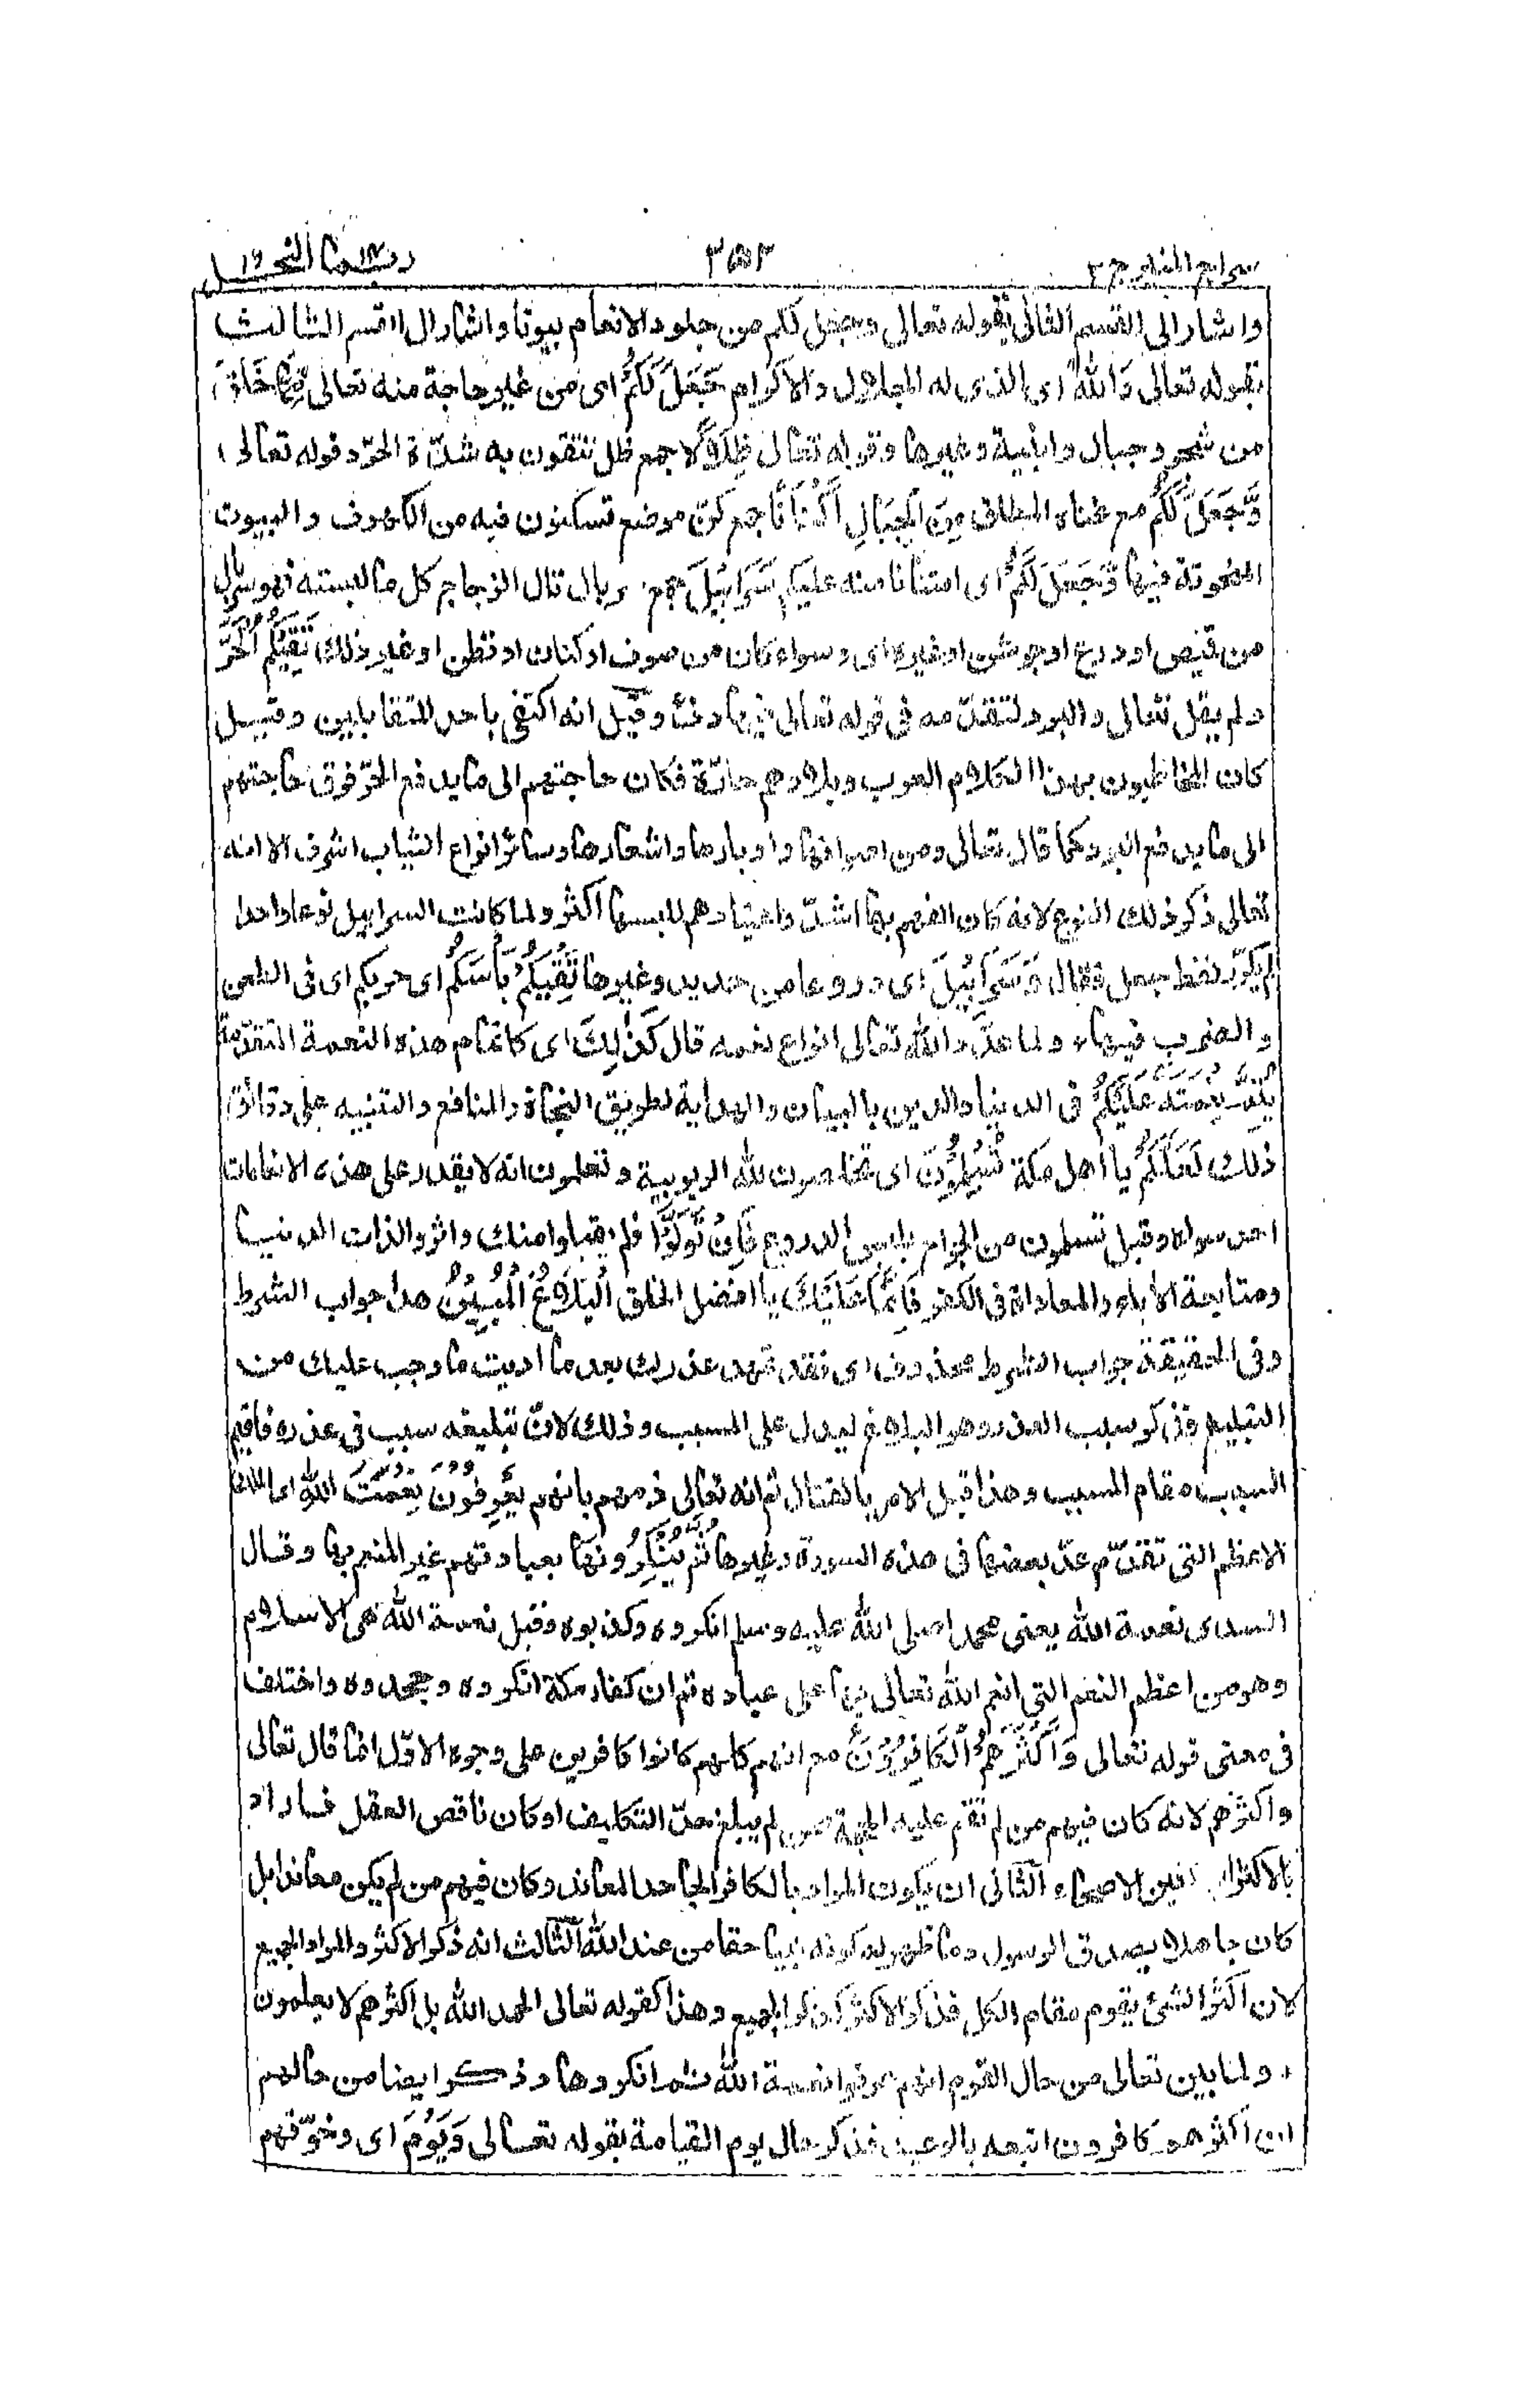 سراج المنير ج ٢
٣٥٣
النحل ١٦
واشار الى القسم الثانى بقوله تعالى وجعل لكم من جلود الانعام بيوتا واشار الى القسم الثالث
بقوله تعالى وَاللّٰهُ اى الذى له الجلال والاكرام جَعَلَ لَكُمْ اى من غير حاجة منه تعالى مِّمَّا خَلَقَ
من شجر وجبال وابنية وغيرها وقوله تعالى ظِلٰلًا جمع ظل تتقون به شدّة الحرّ وقوله تعالى
وَّجَعَلَ لَكُمْ مع غناه المطلق مِنَ الْجِبَالِ اَكْنَانًا جمع كنّ موضع تسكنون فيه من الكهوف والبيوت
المنحوتة فيها وَّجَعَلَ لَكُمْ اى امتنانا منه عليكم سَرَابِيْلَ جمع سربال قال الزجاج كل ما لبسته فهو سربال
من قميص او درع او جوشن او غيره اى وسواء كان من صوف او كتان او قطن او غير ذلك تَقِيْكُمُ الْحَرَّ
ولم يقل تعالى والبرد لتقدّمه فى قوله تعالى فيها دفء وقيل انه اكتفى باحد المتقابلين وقيل
كان المخاطبون بهذا الكلام العرب وبلادهم حارّة فكان حاجتهم الى ما يدفع الحرّ فوق حاجتهم
الى ما يدفع البرد كما قال تعالى ومن اصوافها واوبارها واشعارها وسائر انواع الثياب اشرف الا انه
تعالى ذكر ذلك النوع لانه كان الفهم بها اشدّ واعتيادهم للبسها اكثر ولما كانت السرابيل نوعا واحدا
لم يكرّر لفظ جعل فقال وَسَرَابِيْلَ اى دروعا من حديد وغيرها تَقِيْكُمْ بَأْسَكُمْ اى حربكم اى فى الطعن
والضرب فيها ولما عدّد الله تعالى انواع نعمه قال كَذٰلِكَ اى كاتمام هذه النعمة المتقدّمة
يُتِمُّ نِعْمَتَهٗ عَلَيْكُمْ فى الدنيا والدين بالبيان والهداية لطريق النجاة والمنافع والتنبيه على دقائق
ذلك لَعَلَّكُمْ يا اهل مكة تُسْلِمُوْنَ اى تخلصون لله الربوبية وتعلمون انه لا يقدر على هذه الانعامات
احد سواه وقيل تسلمون من الجراح بلبس الدروع فَاِنْ تَوَلَّوْا فلم يقبلوا منك واثروا لذات الدنيا
ومتابعة الآباء والمعاداة فى الكفر فَاِنَّمَا عَلَيْكَ يا افضل الخلق الْبَلٰغُ الْمُبِيْنُ هذا جواب الشرط
وفى الحقيقة جواب الشرط محذوف اى فقد تمهد عذرك بعد ما اديت ما وجب عليك من
التبليغ فذكر سبب العذر وهو البلاغ ليدل على المسبب وذلك لانّ تبليغه سبب فى عذره فاقيم
السبب مقام المسبب وهذا قبل الامر بالقتال ثم انه تعالى ذمهم بانهم يَعْرِفُوْنَ نِعْمَتَ اللّٰهِ اى الملك
الاعظم التى تقدّم عدّ بعضها فى هذه السورة وغيرها ثُمَّ يُنْكِرُوْنَهَا بعبادتهم غير المنعم بها وقال
السدى نعمة الله يعنى محمدا صلى الله عليه وسلم انكروه وكذبوه وقيل نعمة الله هى الاسلام
وهو من اعظم النعم التى انعم الله تعالى بها على عباده ثم ان كفار مكة انكروه وجحدوه واختلف
فى معنى قوله تعالى وَاَكْثَرُهُمُ الْكَافِرُوْنَ مع انهم كلهم كانوا كافرين على وجوه الاوّل انما قال تعالى
واكثرهم لانه كان فيهم من لم تقم عليه الحجة ممن لم يبلغ حدّ التكليف او كان ناقص العقل فاراد
بالاكثر البالغين الاصحاء الثانى ان يكون المراد بالكافر الجاحد المعاند وكان فيهم من لم يكن معاندا بل
كان جاهلا بصدق الرسول وما ظهر له كونه نبيا حقا من عند الله الثالث انه ذكر الاكثر والمراد الجميع
لان اكثر الشئ يقوم مقام الكل فذكر الاكثر كذكر الجميع وهذا كقوله تعالى الحمد لله بل اكثرهم لا يعلمون
ولما بين تعالى من حال القوم انهم عرفوا نعمة الله ثم انكروها وذكر ايضا من حالهم
ان اكثرهم كافرون اتبعه بالوعيد فذكر حال يوم القيامة بقوله تعالى وَيَوْمَ اى وخوّفهم